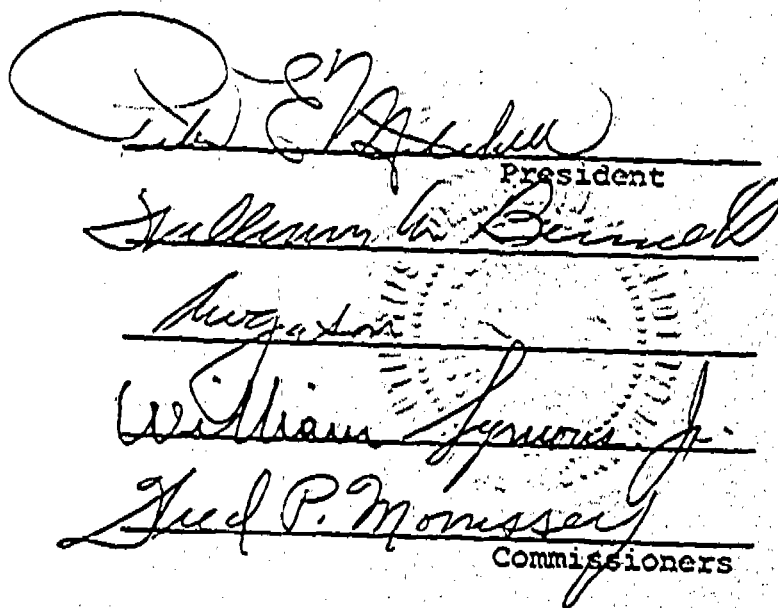 E Mitchell
President
William M Bennett
Sturgeon
William Symons Jr.
Fred P. Morrissey
Commissioners